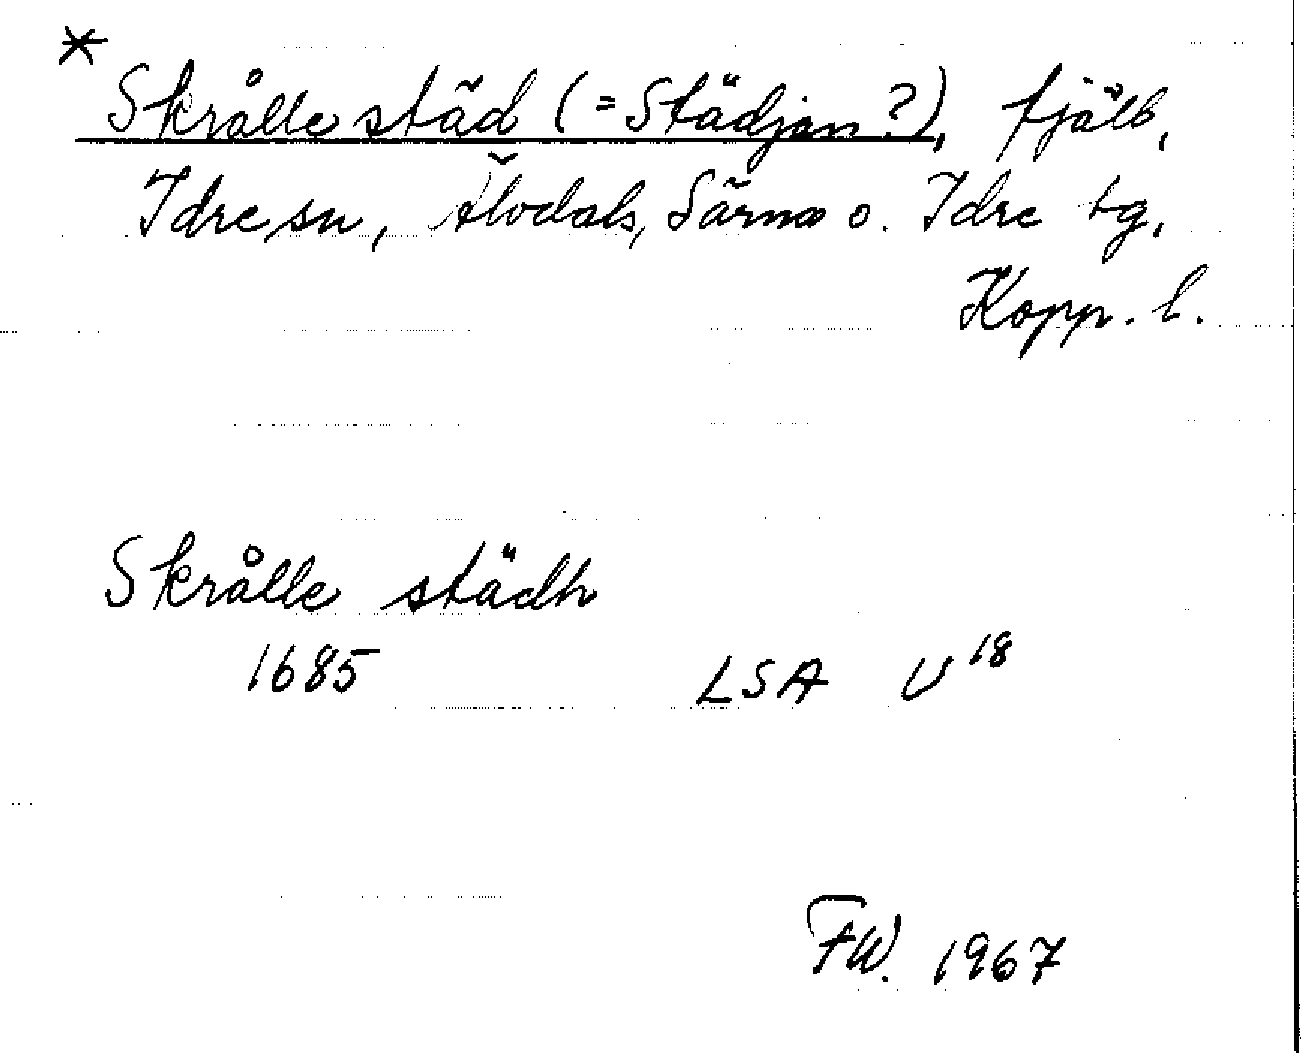 * Skrålle städ (= Städjan ?), fjäll,
Idre sn, Älvdals, Särna o. Idre tg,
Kopp. l.
Skrålle städh
1685 LSA U 18
FW. 1967